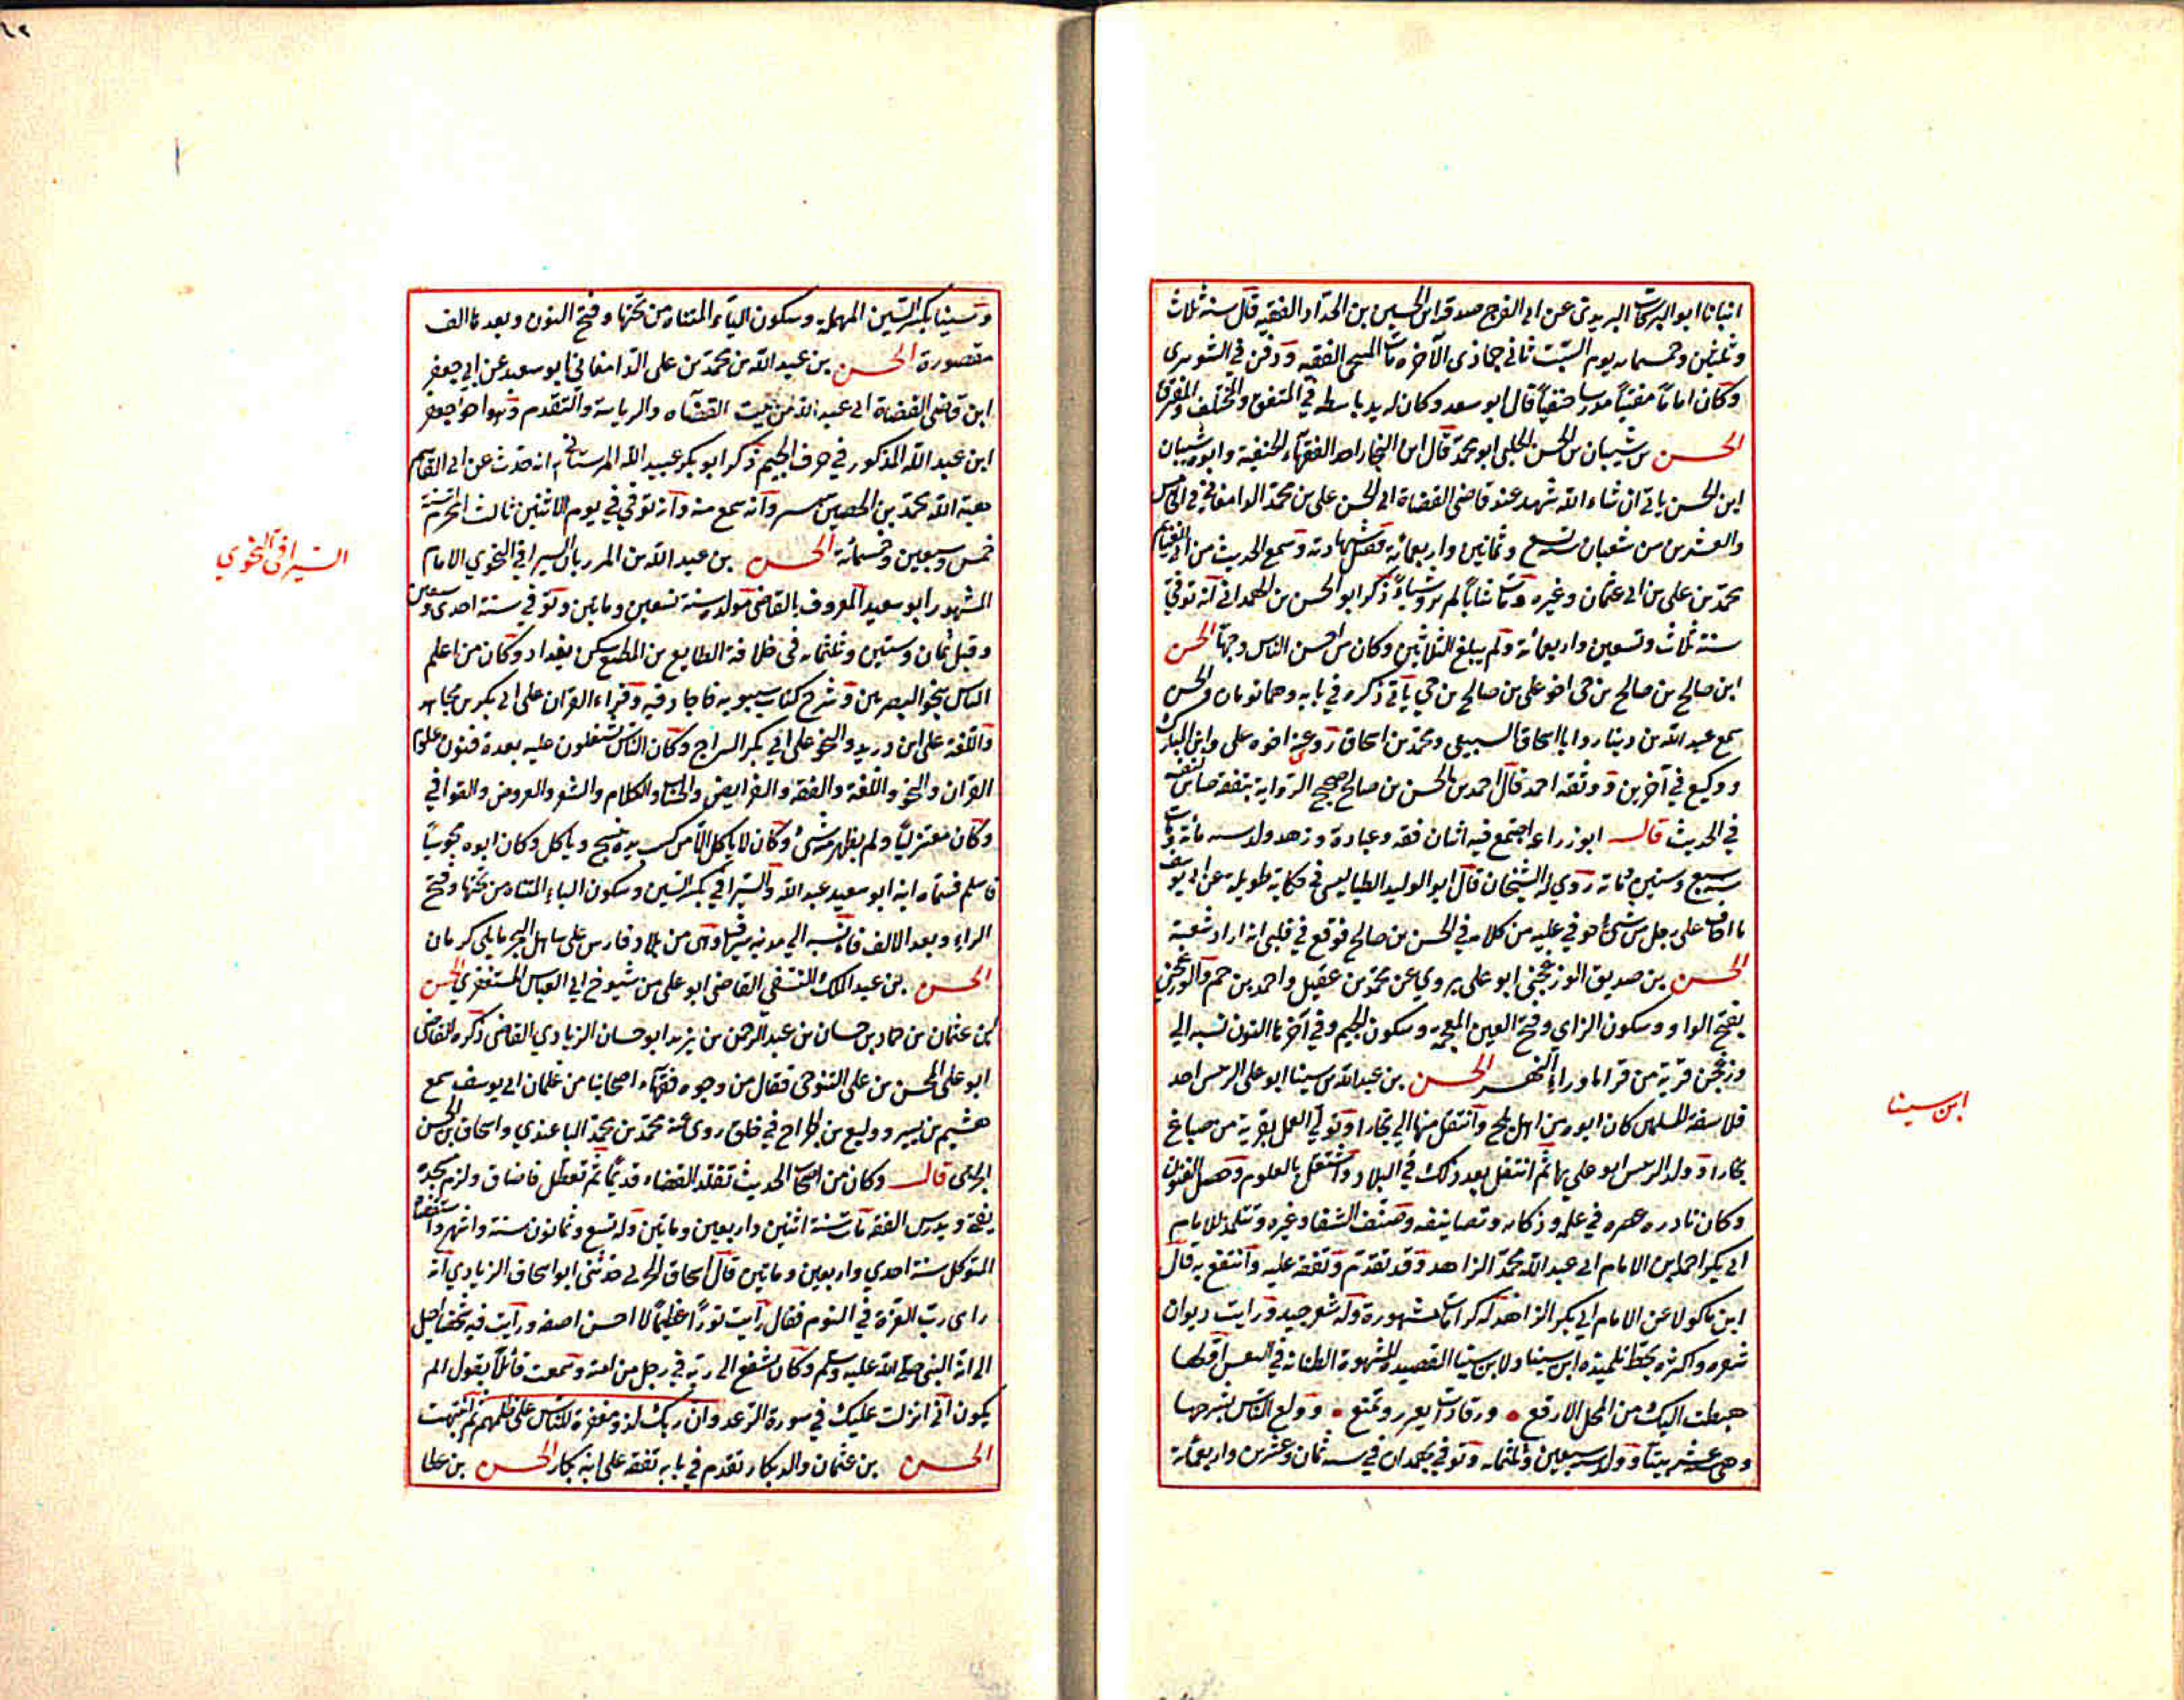 انبانا ابو البركات اليزيدى عن ابى الفرج صدقة ابن الحسين بن الحداد الفقيه قال سنة ثلاث
وثلثين وخمسمايه يوم السبت ثانى جماذى الآخره مات الفقيه ودفن فى الشونيزى
وكان اماماً مفتياً مدرسا حنفياً قال ابو سعد وكان له يد باسطه في المتفق والمختلف والمفترق
الحسن بن شيبان بن الحسن الحلبى ابو محمد قال ابن النجار احد الفقهاء الحنفية وابوه شيبان
ابن الحسن ياتى ان شاء الله شهد عند قاضى القضاة ابى الحسن على بن محمد الدامغانى فى الخامس
والعشرين من شعبان سنة تسع وثمانين واربعمائة فقبل شهادته وسمع الحديث من ابى الغنايم
محمد بن على بن ابى عثمان وغيره ومات شاباً لم يرو شياءً ذكر ابو الحسن بن الهمدانى انه توفي
سنة ثلاث وتسعين واربعمائة ولم يبلغ الثلاثين وكان من احسن الناس وجهاً الحسن
ابن صالح بن صالح بن حى اخو على بن صالح بن حي يأتى ذكره في بابه وهما تومان والحسن
سمع عبد الله بن دينار وابا اسحاق السبيعى ومحمد بن اسحاق روى عنه اخوه على وابن المبارك
ووكيع في آخرين ووثقه احمد قال احمد بن الحسن بن صالح صحيح الرواية متفقه صاين لنفسه
في الحديث قال ابو زراعه اجتمع فيه اتقان فقه وعبادة وزهد ولد سنه مأئة ومات
سنه سبع وستين ومائة روي له الشيخان قال ابو الوليد الطيالسى في حكاية طويلة عن ابى يوسف
ما اخاف على رجل من شئ خوفي عليه من كلامه في الحسن بن صالح فوقع في قلبى انه اراد شعبة
الحسن بن صديق الوزغجنى ابو على يروي عن محمد بن عقيل واحمد بن حم والوزغجنى
بفتح الواو وسكون الزاي وفتح الغين المعجمه وسكون الجيم وفي آخرها النون نسبه الي
وزغجن قرية من قرا ماوراء النهر الحسن بن عبد الله بن سينا ابو على الرئيس احد
فلاسفة المسلمين كان ابوه من اهل بلخ وانتقل منها الي بخارا وتولي العمل بقرية من ضياع
بخارا وولد الرئيس ابو علي بها ثم انتقل بعد ذلك في البلاد واشتغل بالعلوم وحصل الفنون
وكان نادره عصره في علمه وذكايه وتصانيفه وصنف الشفا وغيره وتتلمذ للامام
ابى بكر احمد بن الامام ابى عبد الله محمد الزاهد وقد تقدم وتفقه عليه وانتفع به قال
ابن ماكولا عن الامام ابي بكر الزاهد له كرامات مشهورة وله شعر جيد ورايت ديوان
شعره واكثره بخط تلميذه ابن سينا ولابن سينا القصيدة المشهورة الطنانة في النفس اولها
هبطت اليك من المحل الارفع • ورقاء ذات تعزز وتمنع • وولع الناس بشرحها
وهى عشر بيتاً وولد سنه سبعين وثلثمايه وتوفي بهمدان في سنه ثمان وعشرين واربعمائة
ابن سينا
وسينا بكسر السين المهملة وسكون الياء المثناه من تحتها وفتح النون وبعدها الف
مقصورة الحسن بن عبد الله بن محمد بن على الدامغانى ابو سعيد عن ابى جعفر
ابن قاضى القضاة ابى عبد الله من بيت القضآه والرياسة والتقدم وهو اخو جعفر
ابن عبد الله المذكور في حرف الجيم ذكر ابو بكر عبيد الله المرستانى انه حدث عن ابى القاسم
هبة الله محمد بن الحصين وانه سمع منه وانه توفي في يوم الاثنين ثالث المحرم سنة
خمس وسبعين وخمسمائة الحسن بن عبد الله بن المرزبان السيرافي النحوي الامام
المشهور ابو سعيد المعروف بالقاضى مولده سنة تسعين وماتين وتوفى سنة احدى وسبعين
وقبل ثمان وستين وثلثمايه فى خلافة الطايع بن المطيع سكن بغداد وكان من اعلم
الناس بنحو البصريين وشرح كتاب سيبويه فاجاد فيه وقراء القران على ابى بكر بن مجاهد
واللغة على ابن دريد والنحو على ابي بكر السراج وكان الناس يشتغلون عليه بعدة فنون علوم
القران والنحو واللغة والفقه والفرايض والحساب والكلام والشعر والعروض والقوافي
وكان معتزلياً ولم يظهر منه شئ وكان لا ياكل الا من كسب يده ينسج وياكل وكان ابوه مجوسياً
فاسلم فسماه ابنه ابو سعيد عبد الله والسيرافي بكسر السين وسكون الياء المثناه من تحتها وفتح
الراء وبعد الالف فاء نسبه الي مدينه سيراف وهى من بلاد فارس على ساحل البحر مايلى كرمان
الحسن بن عبد الملك النسفي القاضى ابو على من شيوخ ابى العباس المستغفرى الحسن
ابن عثمان بن حماد بن حسان بن عبد الرحمن بن يزيد ابو حسان الزيادي القاضى ذكره القاضى
ابو على المحسن بن على التنوخى فقال من وجوه فقهاء اصحابنا من غلمان ابى يوسف سمع
هشيم بن بشير ووكيع بن الجراح في خلق روى عنه محمد بن محمد الباغندي واسحاق بن الحسن
الحربى قال وكان من اصحاب الحديث تقلد القضاء قديماً ثم تعطل فاضاق ولزم مسجده
يفتى ويدرس الفقه مات سنة اثنين واربعين وماتين وله تسع وثمانون سنة واشهر واستقضاه
المتوكل سنة احدي واربعين وماتين قال اسحاق الحربى حدثنى ابو اسحاق الزيادي انه
راى رب العزة في النوم فقال رأيت نوراً عظيماً لا احسن اصفه ورأيت فيه شخصا خيل
الى انه النبى صلى الله عليه وسلم وكان يشفع الى ربه في رجل من امته وسمعت قائلاً يقول الم
يكون انى انزلت عليك في سورة الرعد وان ربك لذو مغفرة للناس على ظلمهم ثم انتبهت
الحسن بن عثمان والد بكار تقدم في بابه تفقه على ابنه بكار الحسن بن عطا
السيرافى النحوي